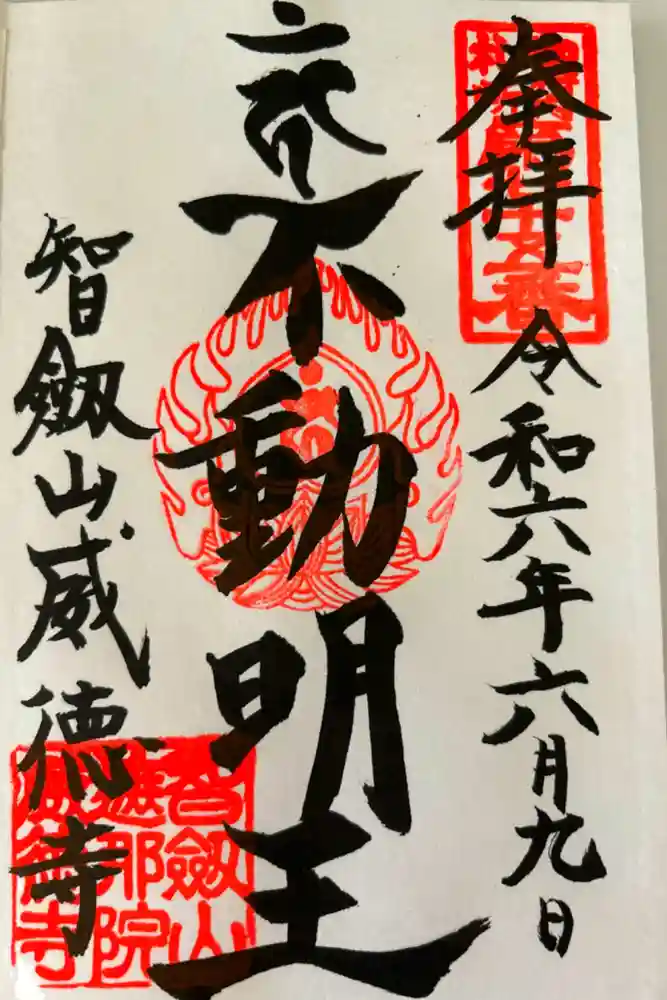 奉拝
令和六年六月九日
不動明王
智劔山威徳寺
智劔山
遮那院
威徳寺